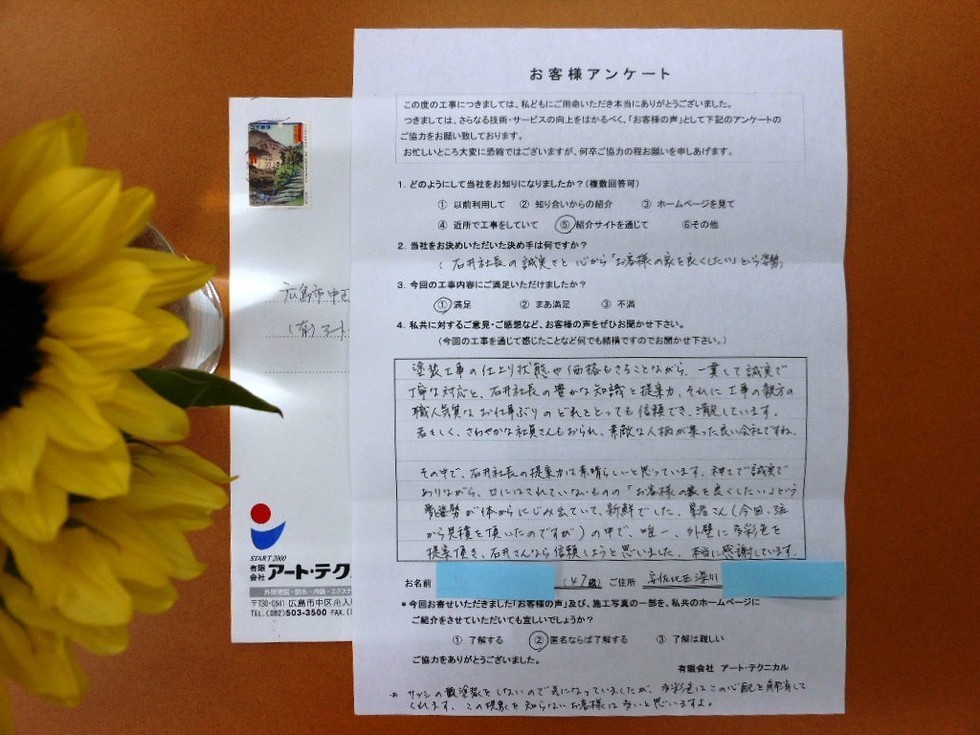 お客様アンケート
この度の工事につきましては、私どもにご用命いただき本当にありがとうございました。
つきましては、さらなる技術・サービスの向上をはかるべく、「お客様の声」として下記のアンケートの
ご協力をお願い致しております。
お忙しいところ大変に恐縮ではございますが、何卒ご協力の程お願いを申しあげます。
1. どのようにして当社をお知りになりましたか?(複数回答可)
① 以前利用して ② 知り合いからの紹介 ③ ホームページを見て
④ 近所で工事をしていて ⑤紹介サイトを通じて ⑥その他
2. 当社をお決めいただいた決め手は何ですか?
( 石井社長の誠実さと心から「お客様の家を良くしたい」という姿勢)
3. 今回の工事内容にご満足いただけましたか?
① 満足 ② まあ満足 ③ 不満
4. 私共に対するご意見・ご感想など、お客様の声をぜひお聞かせ下さい。
(今回の工事を通じて感じたことなど何でも結構ですのでお聞かせ下さい。)
塗装工事の仕上り状態や価格もさることながら、一貫して誠実で
丁寧な対応と、石井社長の豊かな知識と提案力、それに工事の親方の
職人気質なお仕事ぶりのどれをとっても信頼でき、満足しています。
若々しく、さわやかな社員さんもおられ、素敵な人柄が集った良い会社ですね。
その中で、石井社長の提案力は素晴らしいと思っています。紳士で誠実で
ありながら、口にはされていないものの「お客様の家を良くしたい」という
姿勢が体からにじみ出ていて、新鮮でした。業者さん(今回、3社
から見積を頂いたのですが)の中で、唯一、外壁に多彩色を
提案頂き、石井さんなら信頼しようと思いました。本当に感謝しています。
お名前 (47歳) ご住所 安佐北区深川
* 今回お寄せいただきました「お客様の声」及び、施工写真の一部を、私共のホームページに
ご紹介をさせていただいても宜しいでしょうか?
① 了解する ② 匿名ならば了解する ③ 了解は難しい
ご協力をありがとうございました。
有限会社 アート・テクニカル
* サッシの
しないので気になっていましたが、多彩色はこの心配を
くれます。この現象を知らないお客様は多いと思いますよ。
広島市中区
(有)アート
START 2000
有限会社 アート・テク
外壁塗装・防水・内装・エクステ
〒730-0841 広島市中区舟入
TEL.(082)503-3500 FAX.(